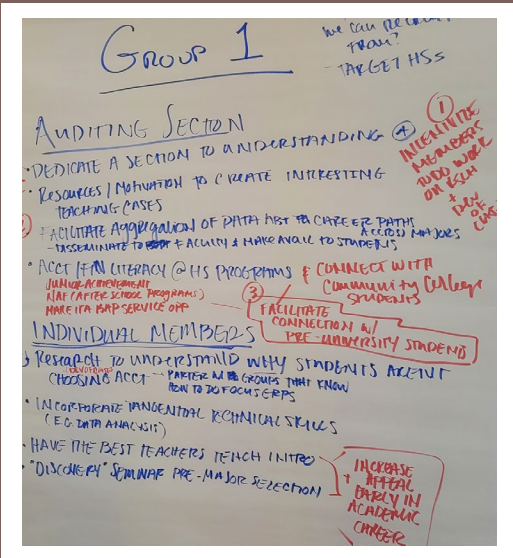 GROUP 1
we can RECRUIT
FROM?
- TARGET HSs
AUDITING SECTION
· DEDICATE A SECTION TO UNDERSTANDING ④
· RESOURCES / MOTIVATION TO CREATE INTERESTING
TEACHING CASES
① INCENTIVIZE
MEMBERS
TO DO WORK
ON
+ DEV
OF
· FACILITATE AGGREGATION OF DATA ABT CAREER PATHS
ACROSS MAJORS
- DISSEMINATE TO FACULTY & MAKE AVAIL TO STUDENTS
· ACCT / FIN LITERACY @ HS PROGRAMS & CONNECT WITH
Community College
STUDENTS
JUNIOR ACHIEVEMENT
NAF (AFTER SCHOOL PROGRAMS)
MAKE IT A BAP SERVICE OPP
③ FACILITATE
CONNECTION W/
PRE-UNIVERSITY STUDENTS
INDIVIDUAL MEMBERS
RESEARCH TO UNDERSTAND WHY STUDENTS AREN'T
CHOOSING ACCT - PARTER W GROUPS THAT KNOW
HOW TO DO FOCUS GRPS
· INCORPORATE TANGENTIAL TECHNICAL SKILLS
(E.G. DATA ANALYSIS)
· HAVE THE BEST TEACHERS TEACH INTRO
· "DISCOVERY" SEMINAR PRE-MAJOR SELECTION
INCREASE
APPEAL
EARLY IN
ACADEMIC
CAREER